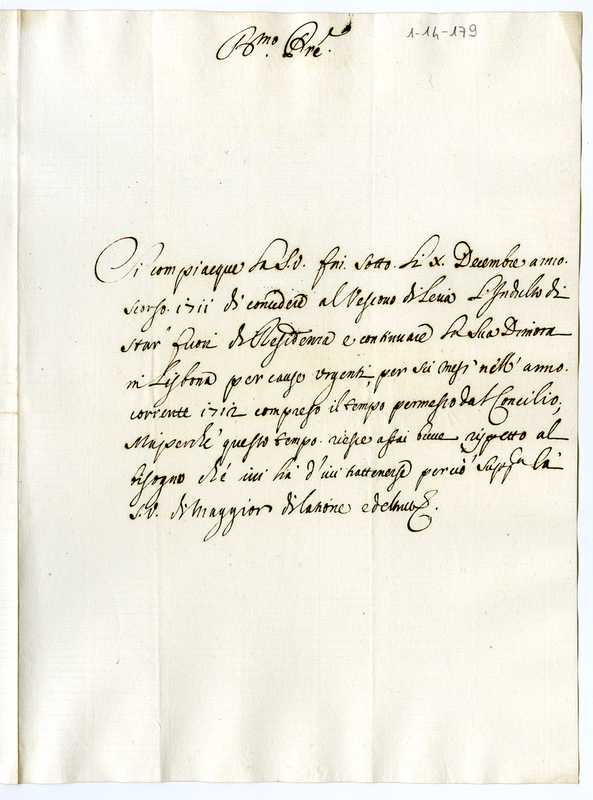 B.mo Pre.
1-14-179
Si compiacque La S.V. fin. sotto. Li X. Decembre anno.
scorso. 1711 di concedere al Vescovo di Leiria L'Indulto di
star' fuori di Residenza e continuare La Sua Dimora
in Lisbona per cause urgenti, per sei mesi nell' anno.
corrente 1712 compreso il tempo permesso dal Concilio,
Mà perche' questo tempo. riesce assai breve rispetto al
bisogno ch'è ivi hà d'ivi trattenersi perciò supp.ca la
S.V. di maggior dilatione e del tutto &.